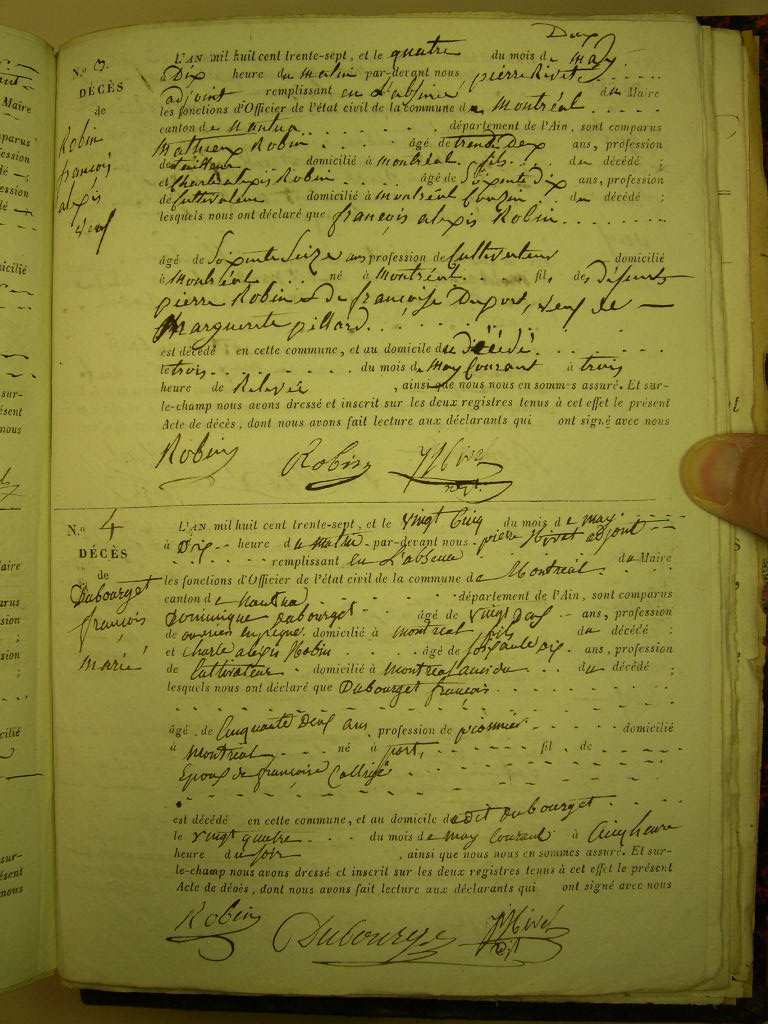 N.o 3.
DÉCÈS
de
Robin
françois
alexis
veuf
L'AN mil huit cent trente-sept, et le quatre du mois de may
à Dix heure du matin par-devant nous pierre Rivet
adjoint remplissant en L'absence du Maire
les fonctions d'Officier de l'état civil de la commune de Montréal
canton de Nantua département de l'Ain, sont comparus
Mathieu Robin âgé de trente Deux ans, profession
de domicilié à Montréal fils du décédé ;
et Charle alexis Robin âgé de Soixante Dix ans, profession
de Cultivateur domicilié à montréal Cousin du décédé ;
lesquels nous ont déclaré que françois alexis Robin
âgé de Soixante Seize ans profession de Cultivateur domicilié
à Montréal né à Montréal fils de Défeunts
pierre Robin et de françoise Duport, veuf de
Marguerite pillard
est décédé en cette commune, et au domicile du Décédé
le trois du mois de May Courant à trois
heure de Relevée , ainsi que nous nous en sommes assuré. Et sur-
le-champ nous avons dressé et inscrit sur les deux registres tenus à cet effet le présent
Acte de décès, dont nous avons fait lecture aux déclarants qui ont signé avec nous
Robin Robin
N.o 4
DÉCÈS
de
Dubourget
françois
marié
L'AN mil huit cent trente-sept, et le vingt Cinq du mois de may
à Dix heure du Matin par-devant nous pierre Rivet adjoint
remplissant en L'absence du Maire
les fonctions d'Officier de l'état civil de la commune de Montréal
canton de Nantua département de l'Ain, sont comparus
Dominique Dubourget âgé de vingt Deux ans, profession
de ouvrier domicilié à Montréal fils du décédé ;
et Charle alexis Robin âgé de soixante Dix ans, profession
de Cultivateur domicilié à Montréal ami du du décédé ;
lesquels nous ont déclaré que Dubourget françois
âgé de Cinquante Deux ans profession de pionnier domicilié
à Montréal né à port, fil de
Epoux de françoise
est décédé en cette commune, et au domicile dudit Dubourget
le vingt quatre du mois de may Courant à Cinq heure
heure du soir , ainsi que nous nous en sommes assuré. Et sur-
le-champ nous avons dressé et inscrit sur les deux registres tenus à cet effet le présent
Acte de décès, dont nous avons fait lecture aux déclarants qui ont signé avec nous
Robin Dubourget